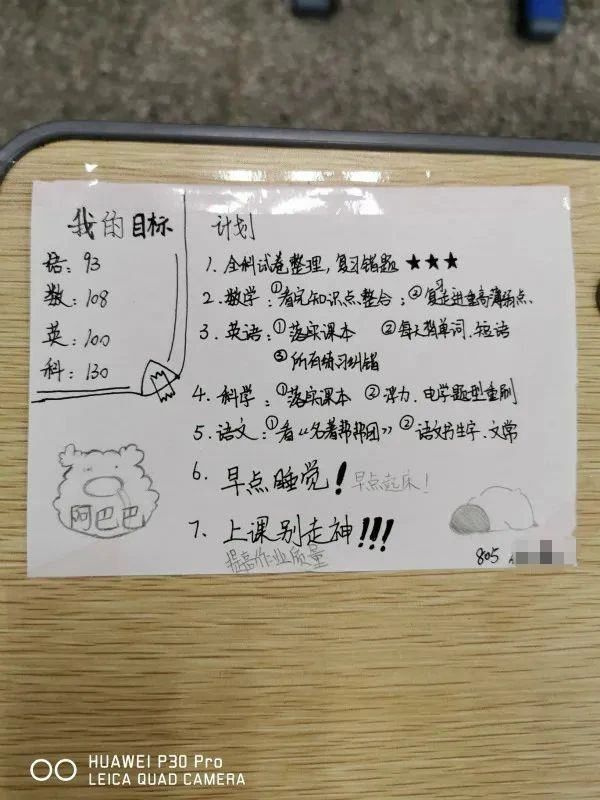 我的目标
语：93
数：108
英：100
科：130
计划
1. 全科试卷整理，复习错题 ★★★
2. 数学：①看完知识点整合；②走进重高薄弱点
3. 英语：①落实课本 ②每天背单词、短语
③所有练习纠错
4. 科学：①落实课本 ②浮力、电学题型重刷
5. 语文：①看《名著帮帮团》②语文书生字、文常
6. 早点睡觉！早点起床！
7. 上课别走神！！！
提高作业质量
阿巴巴
805
HUAWEI P30 Pro
LEICA QUAD CAMERA